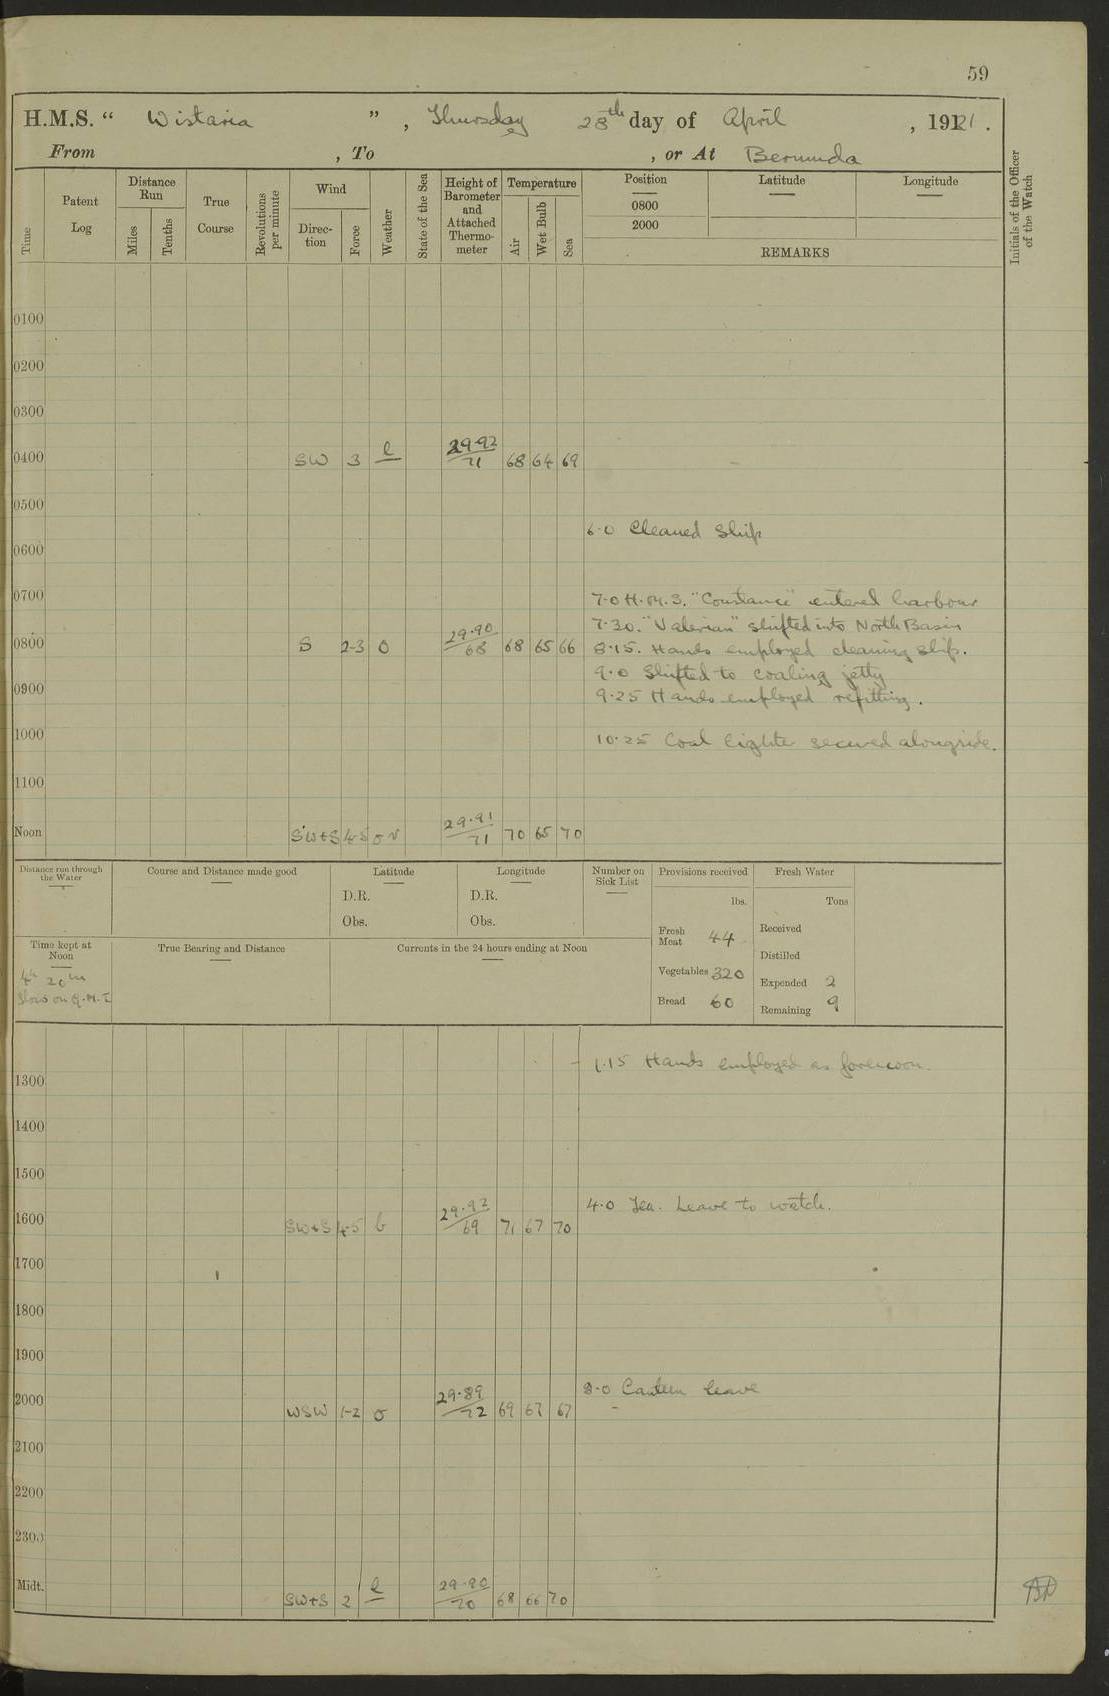 59
H.M.S. “ Wistaria ” , Thursday 28th day of April , 1921 .
From , To , or At Bermuda
Time
Patent Log
Distance Run
Miles
Tenths
True Course
Revolutions per minute
Wind
Direc-tion
Force
Weather
State of the Sea
Height of Barometer and Attached Thermo-meter
Temperature
Air
Wet Bulb
Sea
Position
0800
2000
Latitude
Longitude
REMARKS
Initials of the Officer of the Watch
0100
0200
0300
0400 SW 3 29.92 71 68 64 69
0500
6.0 Cleaned Ship
0600
0700 7.0 H.M.S. "Constance" entered harbour
7.30. "Valerian" shifted into North Basin
0800 S 2-3 O 29.90 68 68 65 66 8.15. Hands employed cleaning ship.
9.0 Shifted to coaling jetty
0900 9.25 Hands employed refitting.
1000 10.25 Coal lighter secured alongside.
1100
Noon SW+S 4-5 o v 29.91 71 70 65 70
Distance run through the Water
Course and Distance made good
Latitude
D.R.
Obs.
Longitude
D.R.
Obs.
Number on Sick List
Provisions received
lbs.
Fresh Meat 44
Vegetables 320
Bread 60
Fresh Water
Tons
Received
Distilled
Expended 2
Remaining 9
Time kept at Noon
4h 20m
Slow on G.M.T
True Bearing and Distance
Currents in the 24 hours ending at Noon
1.15 Hands employed as forenoon.
1300
1400
1500
4.0 Tea. Leave to watch.
1600 SW+S 4-5 b 29.92 69 71 67 70
1700
1800
1900
8.0 Canteen leave
2000 WSW 1-2 o 29.89 72 69 67 67
2100
2200
2300
Midt. SW+S 2 29.90 70 68 66 70